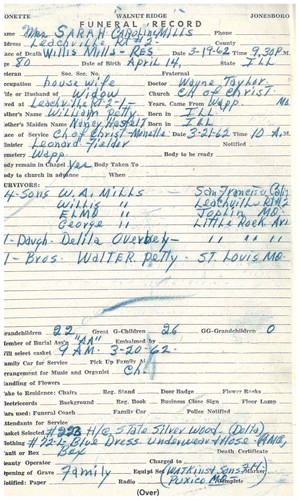 ONETTE WALNUT RIDGE JONESBORO
FUNERAL RECORD
ame Mrs SARAH Caroline MILLS Phone
ddress Leachville Rt #2- County
ace of Death Willis Mills - Res - Date 3-19-62 Time 9:30 P.M.
ge 80 Date of Birth April 14, State ILL
eteran Soc. Sec. No. Fraternal
ccupation house wife Doctor Wayne Taylor
ife or Husband of Widow Church Ch of Christ
ived at Leachville Rt-2-1- Years, Came From Wapp. Mo
ather's Name William Petty Born in ILL
other's Maiden Name Nancy Born in ILL
ace of Service Ch of Christ - Date 3-21-62 Time 10 A.M.
inister Leonard Fielder
emetery Wapp.
ody remain in Chapel yes Body Taken To
ody to church in advance When
URVIVORS:
4-Sons W. A. Mills - San Francisco, Calif
Willis " Leachville Rt #2
ELMO " Joplin Mo.
George " Little Rock Ark
1-Daugh. Delila Overbey - " " "
1-Bros. Walter Petty - St. Louis Mo.
randchildren 22 Great G-Children 26 GG-Grandchildren 0
ember of Burial Ass'n "AA" Embalmed by
ill select casket 9 AM. 3-20-62-
amily Car for Service Pick Up Family At
rrangement for Music and Organist Ch.
andling of Flowers
ake to Residence: Chairs Reg. Stand Door Badge Flower Racks
lectricords Background Reg. Book Business Close Sign Floor Lamp
ars used: Funeral Coach Family Car Police Notified
ttendants for Service
asket Selected #223 H/C State Silver wood (Delta)
lothing #22-L Blue Dress Underwear & Hose
ault or Box Box Death Certificate
eauty Operator Charge to Complete
pening of Grave Family Equip't Set (Watkins & Sons
otice: Paper Radio Puxico Mo.
(Over)